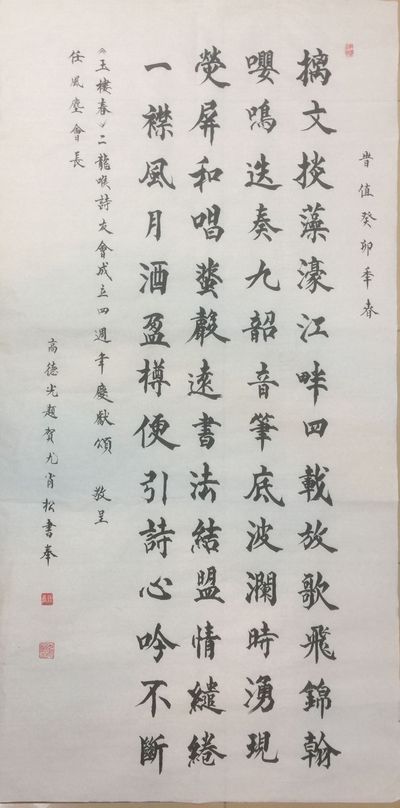 昔值癸卯年春
摛文掞藻濠江畔四載放歌飛錦翰
嚶鳴迭奏九韶音筆底波瀾時湧現
熒屏和唱蜚聲遠書法結盟情繾綣
一襟風月酒盈樽便引詩心吟不斷
《玉樓春》二龍喉詩友會成立四週年慶獻頌 敬呈
任風塵會長
高德光題賀尤肖松書奉